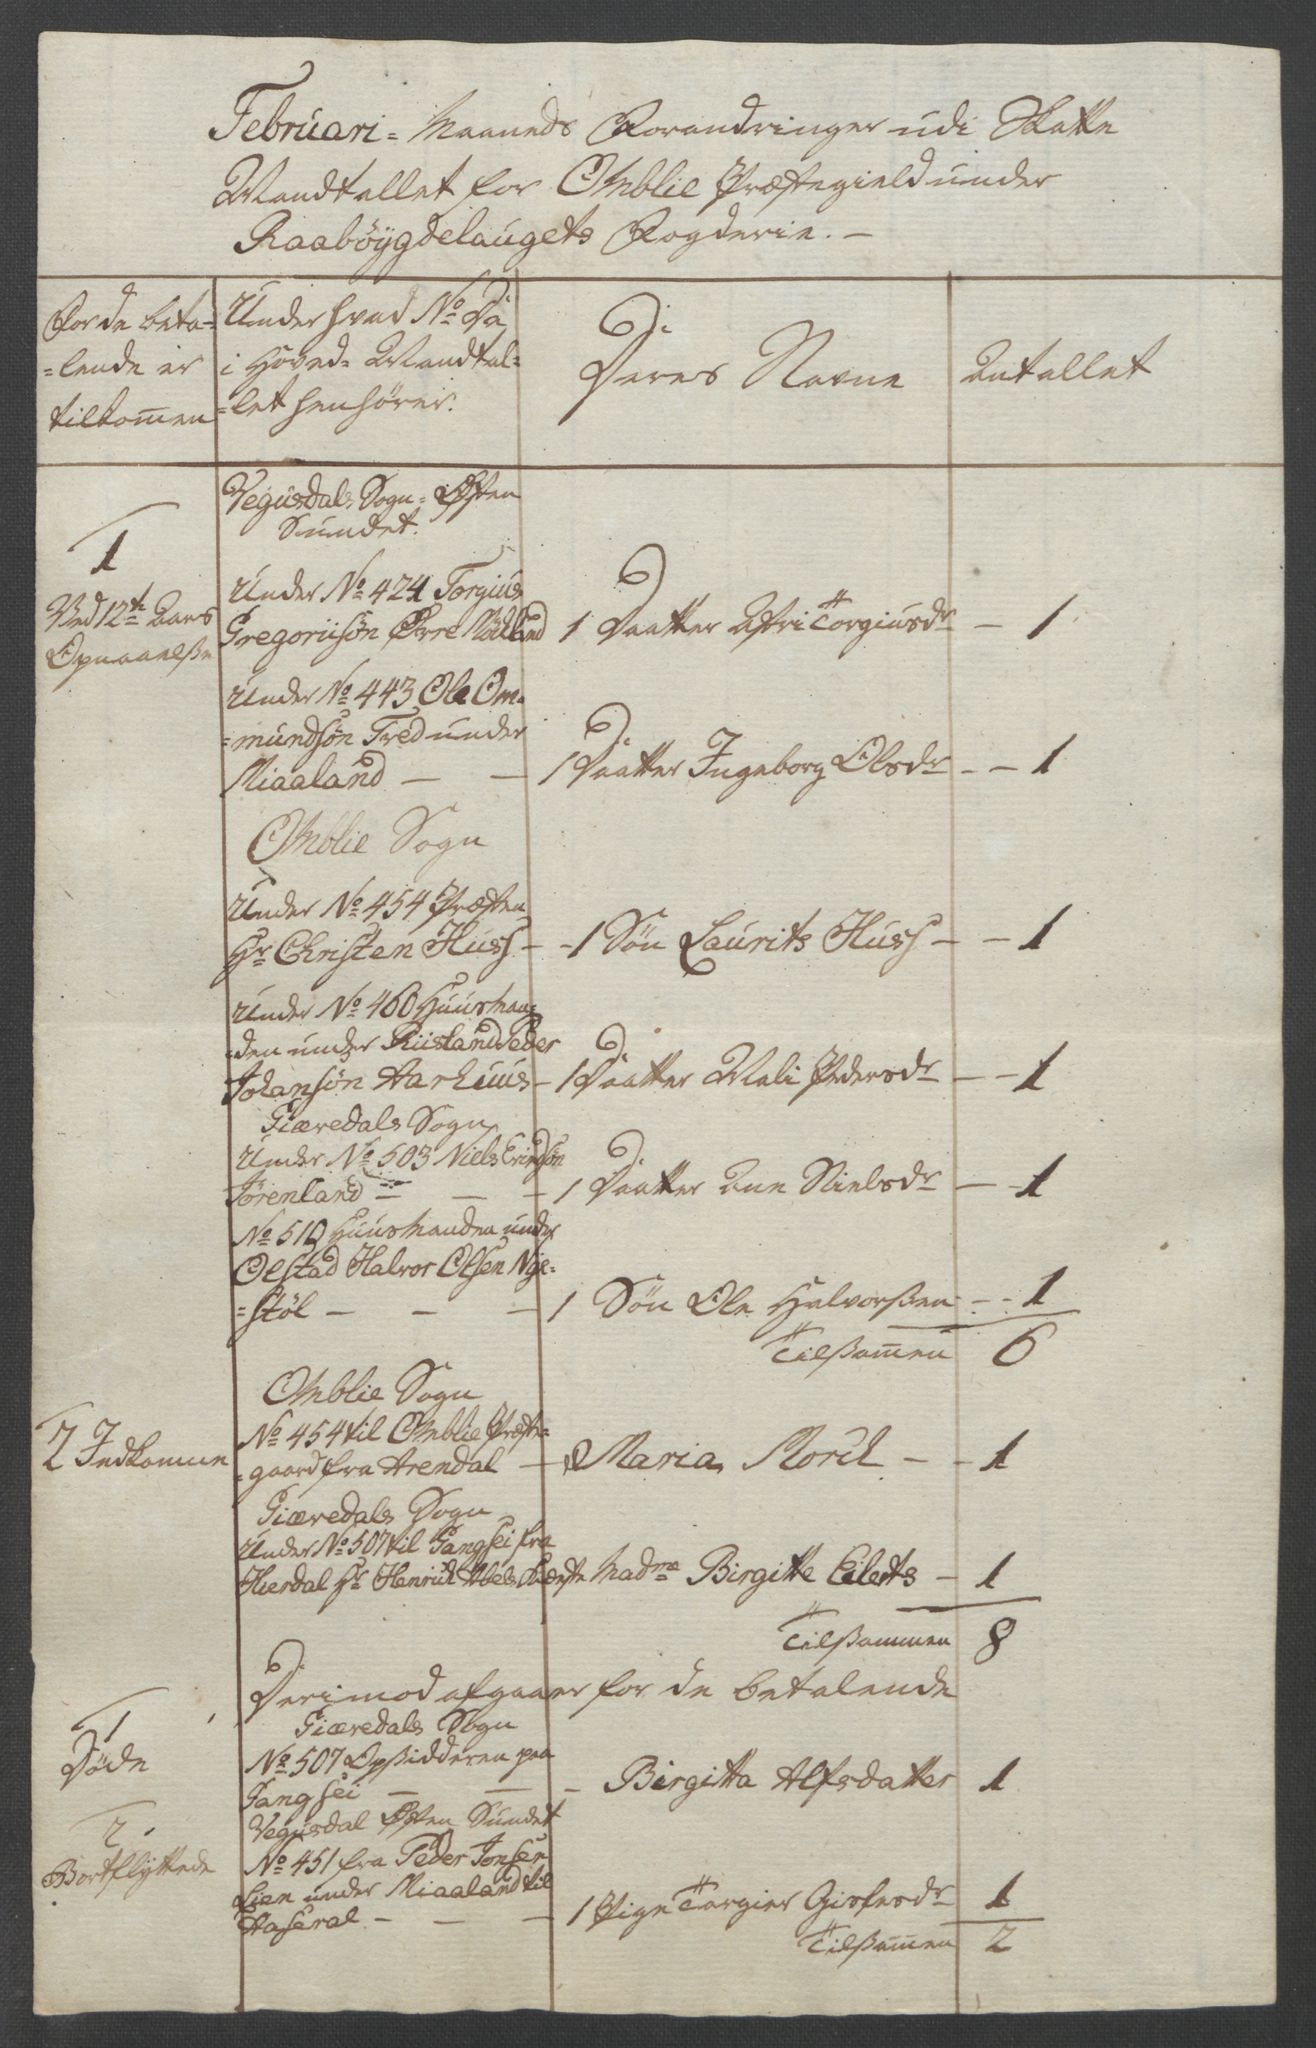 Februari = Maaneds Forandringer udi Skatte
Mandtallet for Omblie Præstegield under
Raabøygdelaugets Fogderie. –
For de beta=
=lende er
tilkom̅en
Under hvad No Di
i Hoved= Mandtal=
=let henhører.
Deres Navne
Antallet
Vegusdals Sogn = Østen
Sundet.
1
Ved 12te Aars
Opnaaelße
Under No 424 Torgius
Gregoriisøn Øvre
1 Daatter Astri Torgiusdr – 1
Under No 443 Ole Om=
=mundsøn Tred under
Miaaland – – 1 Daatter Ingeborg Olsdr – – 1
Omblie Sogn
Under No 454 Præsten
Hr Christen Huss – – 1 Søn Laurits Huss – – 1
Under No 460 Huusman=
=den under Riisland Peder
Johansøn Aarhuus – 1 Daatter Mali Pedersdr – – 1
Giæredals Sogn
Under No 503 Niels
Jørenland – – – 1 Daatter Ane Nielsdr – – 1
No 519 Huusmanden under
Oelstad Halvor Olsen Nye=
=støl – – – 1 Søn Ole Halvorßen – – 1
Tilßam̅en 6
Omblie Sogn
2 Indkomne
No 454 til Omblie Præste=
=gaard fra Arendal – Maria Morck – – 1
Giæredals Sogn
Under No 507 til Gangsei fra
Hierdal Hr Henrich Abels Kiæreste Madme Birgitte Eilerts – 1
Tilßammen 8
Derimod afgaaer for de betalende
Giæredals Sogn
1
Døde
No 507 Opsidderen paa
Gangsei – – – Birgitta Alfsdatter 1
Vegusdal Østen Sundet
2
Bortflyttede
No 451 fra Peder Jonsen
Lien under Miaaland til
Aaseral – – – 1 Pige Torgier Gislesdr 1
Tilßam̅en 2